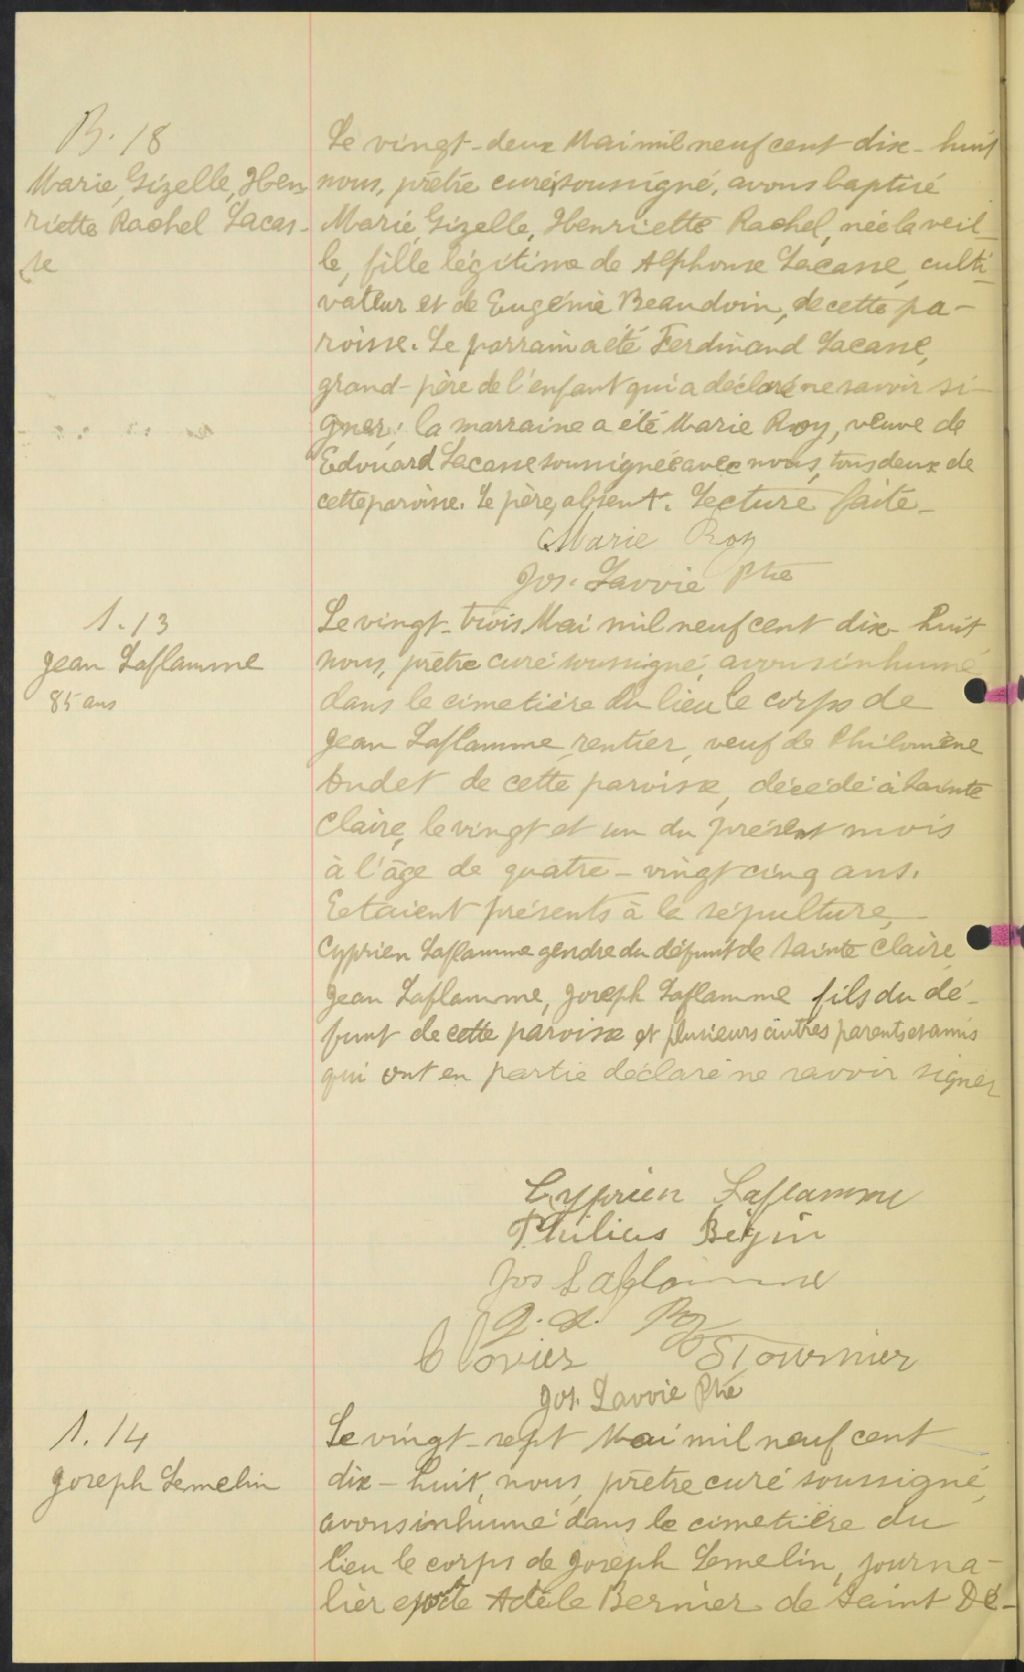 B. 18
Marie, Gizelle, Hen-
riette Rachel Lacas-
se
Le vingt-deux Mai mil neuf cent dix-huit
nous, prêtre curé, soussigné, avons baptisé
Marie, Gizelle, Henriette Rachel, née la veil-
le, fille légitime de Alphonse Lacasse, culti-
vateur et de Eugénie Beaudoin, de cette pa-
roisse. Le parrain a été Ferdinand Lacasse,
grand-père de l'enfant qui a déclaré ne savoir si-
gner; la marraine a été Marie Roy, veuve de
Edouard Lacasse soussignée avec nous, tous deux de
cette paroisse. Le père, absent. Lecture faite-
Marie Roy
Jos. Lavoie Ptre
S. 13
Jean Laflamme
85 ans
Le vingt-trois Mai mil neuf cent dix-huit
nous, prêtre curé soussigné, avons inhumé
dans le cimetière du lieu le corps de
Jean Laflamme, rentier, veuf de Philomène
Audet de cette paroisse, décédé à Sainte
Claire, le vingt et un du présent mois
à l'âge de quatre-vingt cinq ans.
Etaient présents à la sépulture,-
Cyprien Laflamme gendre du défunt de Sainte Claire,
Jean Laflamme, Joseph Laflamme fils du dé-
funt de cette paroisse et plusieurs autres parents et amis
qui ont en partie déclaré ne savoir signer
Cyprien Laflamme
Philius Bégin
Jos Laflamme
Clovier Fournier
Jos. Lavoie Ptre
S. 14
Joseph Lemelin
Le vingt-sept Mai mil neuf cent
dix-huit, nous, prêtre curé soussigné,
avons inhumé dans le cimetière du
lieu le corps de Joseph Lemelin, journa-
lier époux de Adèle Bernier de Saint Dé-